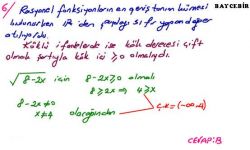 BAYCEBİR
6/ Rasyonel fonksiyonların en geniş tanım kümesi
bulunurken IR'den paydayı sıfır yapan değer
atılıyordu.
Köklü ifadelerde ise kök derecesi çift
olmak şartıyla kök içi ≥ 0 olmalıydı.
√8-2x için 8-2x≥0 olmalı
8≥2x ⇒ 4≥x
8-2x≠0
x≠4 olacağından
Ç.K=(-∞,4)
CEVAP:B